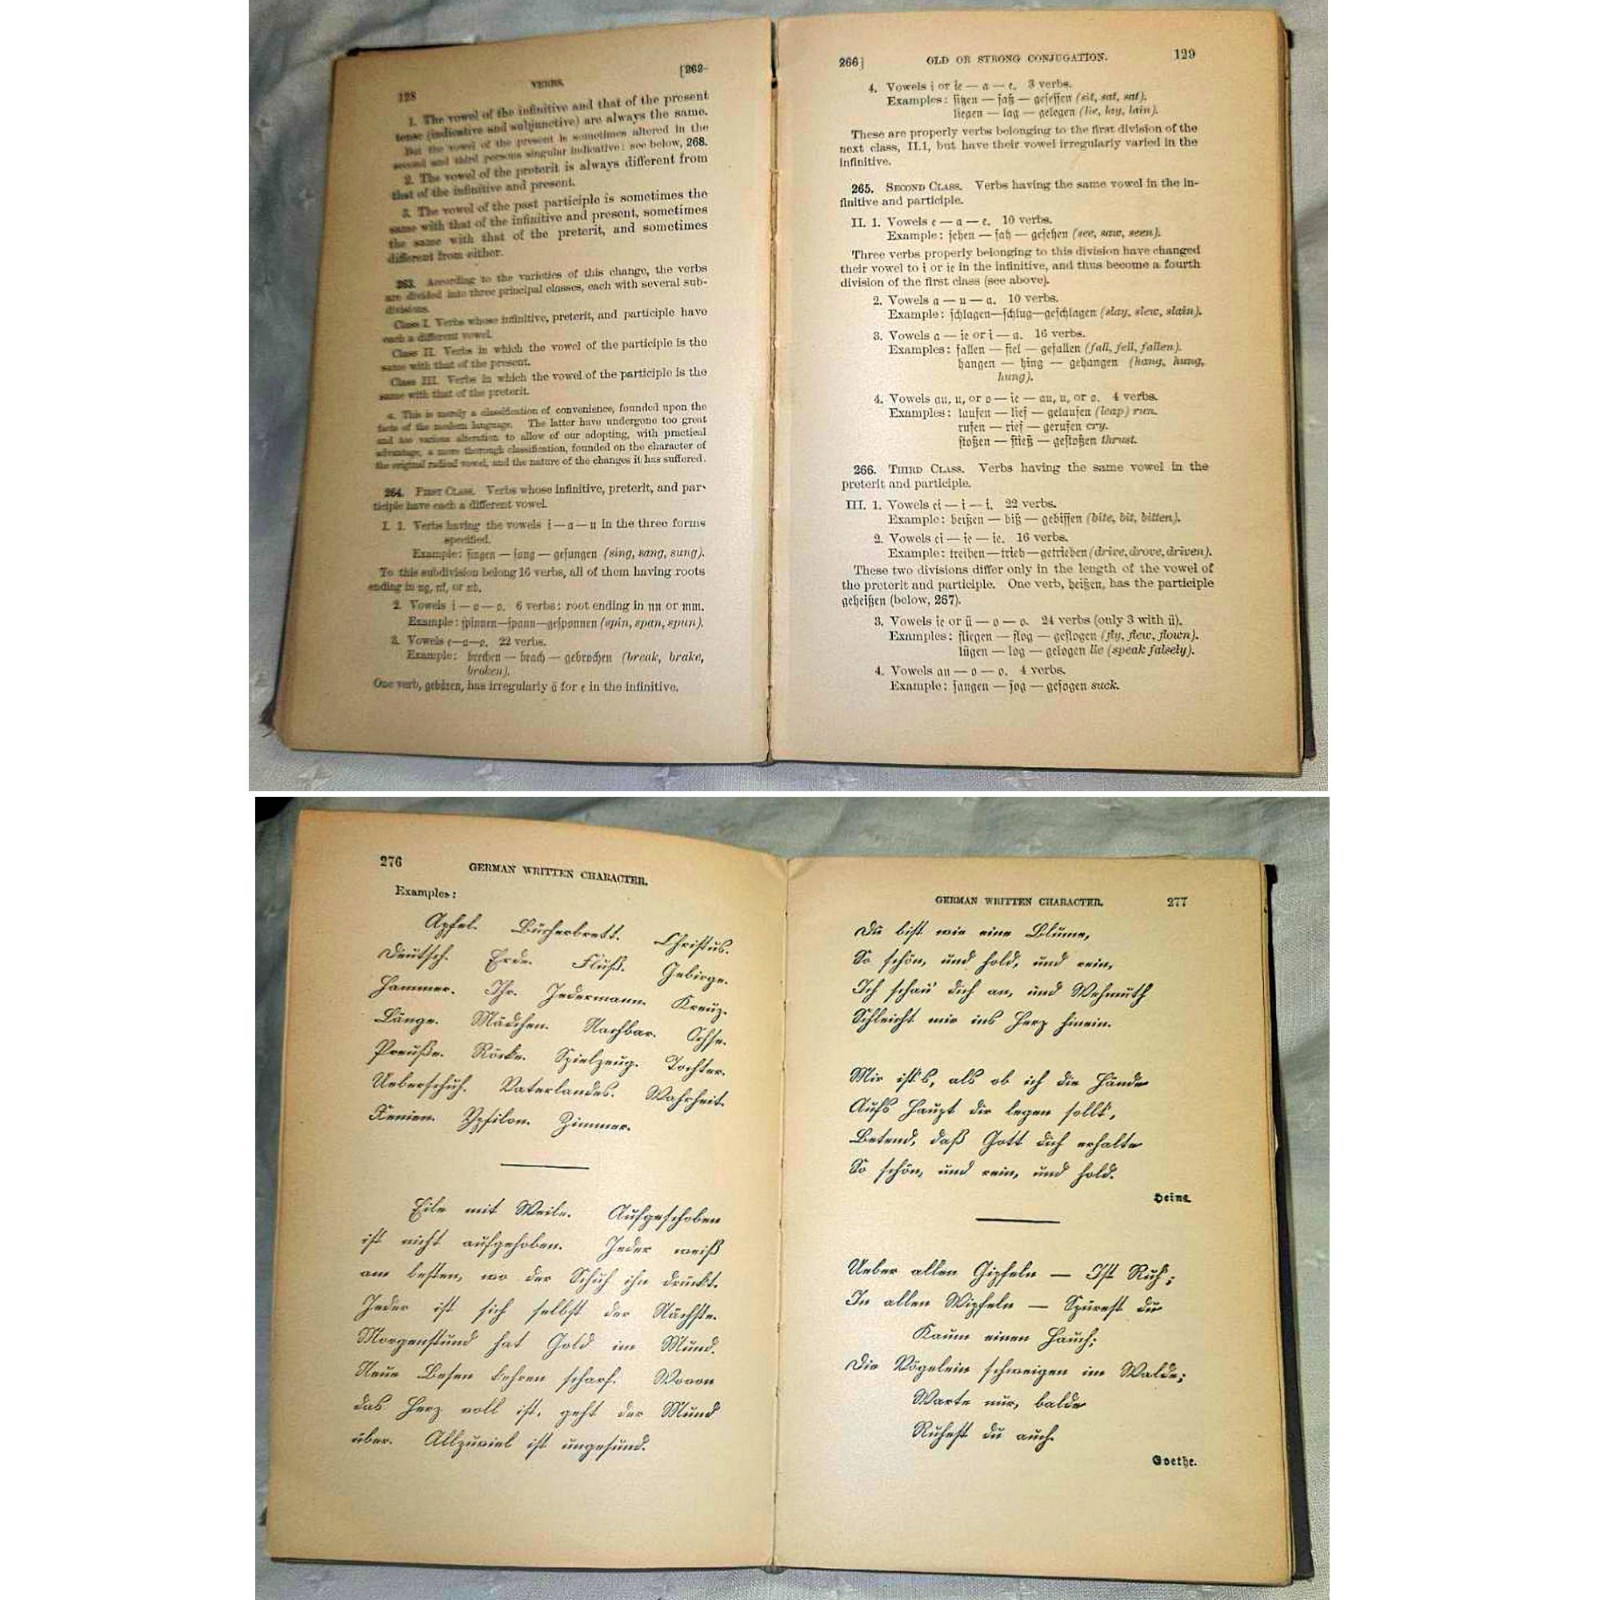 128
VERBS.
[262-
1. The vowel of the infinitive and that of the present
tense (indicative and subjunctive) are always the same.
But the vowel of the present is sometimes altered in the
second and third persons singular indicative: see below, 268.
2. The vowel of the preterit is always different from
that of the infinitive and present.
3. The vowel of the past participle is sometimes the
same with that of the infinitive and present, sometimes
the same with that of the preterit, and sometimes
different from either.
263. According to the varieties of this change, the verbs
are divided into three principal classes, each with several sub-
divisions.
Class I. Verbs whose infinitive, preterit, and participle have
each a different vowel.
Class II. Verbs in which the vowel of the participle is the
same with that of the present.
Class III. Verbs in which the vowel of the participle is the
same with that of the preterit.
a. This is merely a classification of convenience, founded upon the
facts of the modern language. The latter have undergone too great
and too various alteration to allow of our adopting, with practical
advantage, a more thorough classification, founded on the character of
the original radical vowel, and the nature of the changes it has suffered.
264. FIRST CLASS. Verbs whose infinitive, preterit, and par-
ticiple have each a different vowel.
I. 1. Verbs having the vowels i — a — u in the three forms
specified.
Example: singen — sang — gesungen (sing, sang, sung).
To this subdivision belong 16 verbs, all of them having roots
ending in ng, nk, or nd.
2. Vowels i — a — o. 6 verbs: root ending in nn or mm.
Example: spinnen—spann—gesponnen (spin, span, spun).
3. Vowels e—a—o. 22 verbs.
Example: brechen — brach — gebrochen (break, brake,
broken).
One verb, gebären, has irregularly ä for e in the infinitive.
266]
OLD OR STRONG CONJUGATION.
129
4. Vowels i or ie — a — e. 3 verbs.
Examples: sitzen — saß — gesessen (sit, sat, sat).
liegen — lag — gelegen (lie, lay, lain).
These are properly verbs belonging to the first division of the
next class, II.1, but have their vowel irregularly varied in the
infinitive.
265. SECOND CLASS. Verbs having the same vowel in the in-
finitive and participle.
II. 1. Vowels e — a — e. 10 verbs.
Example: sehen — sah — gesehen (see, saw, seen).
Three verbs properly belonging to this division have changed
their vowel to i or ie in the infinitive, and thus become a fourth
division of the first class (see above).
2. Vowels a — u — a. 10 verbs.
Example: schlagen—schlug—geschlagen (slay, slew, slain).
3. Vowels a — ie or i — a. 16 verbs.
Examples: fallen — fiel — gefallen (fall, fell, fallen).
hangen — hing — gehangen (hang, hung,
hung).
4. Vowels au, u, or o — ie — au, u, or o. 4 verbs.
Examples: laufen — lief — gelaufen (leap) run.
rufen — rief — gerufen cry.
stoßen — stieß — gestoßen thrust.
266. THIRD CLASS. Verbs having the same vowel in the
preterit and participle.
III. 1. Vowels ei — i — i. 22 verbs.
Example: beißen — biß — gebissen (bite, bit, bitten).
2. Vowels ei — ie — ie. 16 verbs.
Example: treiben—trieb—getrieben (drive, drove, driven).
These two divisions differ only in the length of the vowel of
the preterit and participle. One verb, heißen, has the participle
geheißen (below, 267).
3. Vowels ie or ü — o — o. 24 verbs (only 3 with ü).
Examples: fliegen — flog — geflogen (fly, flew, flown).
lügen — log — gelogen lie (speak falsely).
4. Vowels au — o — o. 4 verbs.
Example: saugen — sog — gesogen suck.
276
GERMAN WRITTEN CHARACTER.
Examples:
Apfel. Bücherbrett. Christus.
Deutsch. Erde. Fluß. Gebirge.
Hammer. Ihr. Jedermann. Kreuz.
Länge. Mädchen. Nachbar. Ochse.
Preuße. Röcke. Spielzeug. Tochter.
Ueberschuh. Vaterlandes. Wahrheit.
Xenien. Ypsilon. Zimmer.
Eile mit Weile. Aufgeschoben
ist nicht aufgehoben. Jeder weiß
am besten, wo der Schuh ihn drückt.
Jeder ist sich selbst der Nächste.
Morgenstund hat Gold im Mund.
Neue Besen kehren scharf. Wovon
das Herz voll ist, geht der Mund
über. Allzuviel ist ungesund.
GERMAN WRITTEN CHARACTER.
277
Du bist wie eine Blume,
So schön, und hold, und rein,
Ich schau' dich an, und Wehmuth
Schleicht mir ins Herz hinein.
Mir ist's, als ob ich die Hände
Aufs Haupt dir legen sollt',
Betend, daß Gott dich erhalte
So schön, und rein, und hold.
Heine.
Ueber allen Gipfeln — Ist Ruh';
In allen Wipfeln — Spürest du
Kaum einen Hauch;
Die Vögelein schweigen im Walde;
Warte nur, balde
Ruhest du auch.
Goethe.